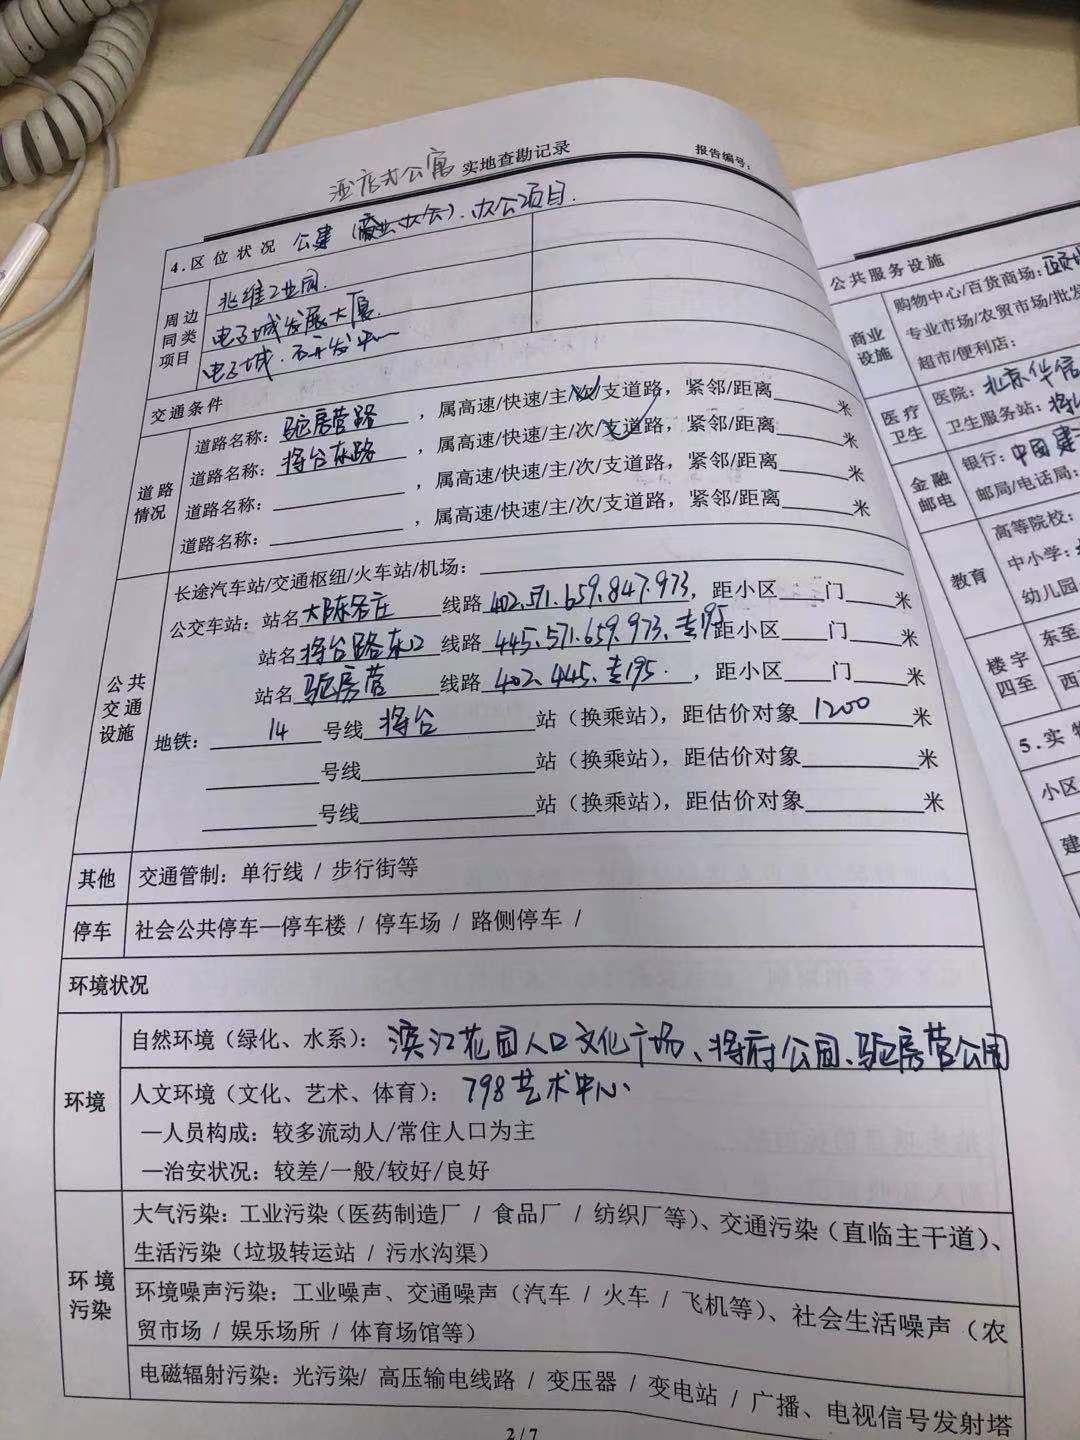 酒店式公寓 实地查勘记录 报告编号：
4.区位状况 公建（商业办公）、办公项目.
周边同类项目
兆维工业园.
电子城发展大厦.
电子城·
交通条件
道路情况
道路名称：驼房营路，属高速/快速/主/次/支道路，紧邻/距离____米
道路名称：将台东路，属高速/快速/主/次/支道路，紧邻/距离____米
道路名称：____，属高速/快速/主/次/支道路，紧邻/距离____米
道路名称：____，属高速/快速/主/次/支道路，紧邻/距离____米
公共交通设施
长途汽车站/交通枢纽/火车站/机场：____
公交车站：站名大陈各庄 线路402.571.659.847.973，距小区____门____米
站名将台路东口 线路445.571.659.973.专195距小区____门____米
站名驼房营 线路402、445.专195.，距小区____门____米
地铁：14号线将台站（换乘站），距估价对象1200米
____号线____站（换乘站），距估价对象____米
____号线____站（换乘站），距估价对象____米
其他 交通管制：单行线 / 步行街等
停车 社会公共停车—停车楼 / 停车场 / 路侧停车 /
环境状况
环境
自然环境（绿化、水系）：滨江花园人口文化广场、将府公园、驼房营公园
人文环境（文化、艺术、体育）：798艺术中心、
—人员构成：较多流动人/常住人口为主
—治安状况：较差/一般/较好/良好
环境污染
大气污染：工业污染（医药制造厂 / 食品厂 / 纺织厂等）、交通污染（直临主干道）、
生活污染（垃圾转运站 / 污水沟渠）
环境噪声污染：工业噪声、交通噪声（汽车 / 火车 / 飞机等）、社会生活噪声（农
贸市场 / 娱乐场所 / 体育场馆等）
电磁辐射污染：光污染/ 高压输电线路 / 变压器 / 变电站 / 广播、电视信号发射塔
2/7
公共服务设施
商业设施
购物中心/百货商场：
专业市场/农贸市场/批发
超市/便利店：
医疗卫生
医院：北京华信
卫生服务站：
金融邮电
银行：中国建
邮局/电话局：
教育
高等院校：
中小学：
幼儿园
楼宇四至
东至
西
5.实物
小区
建